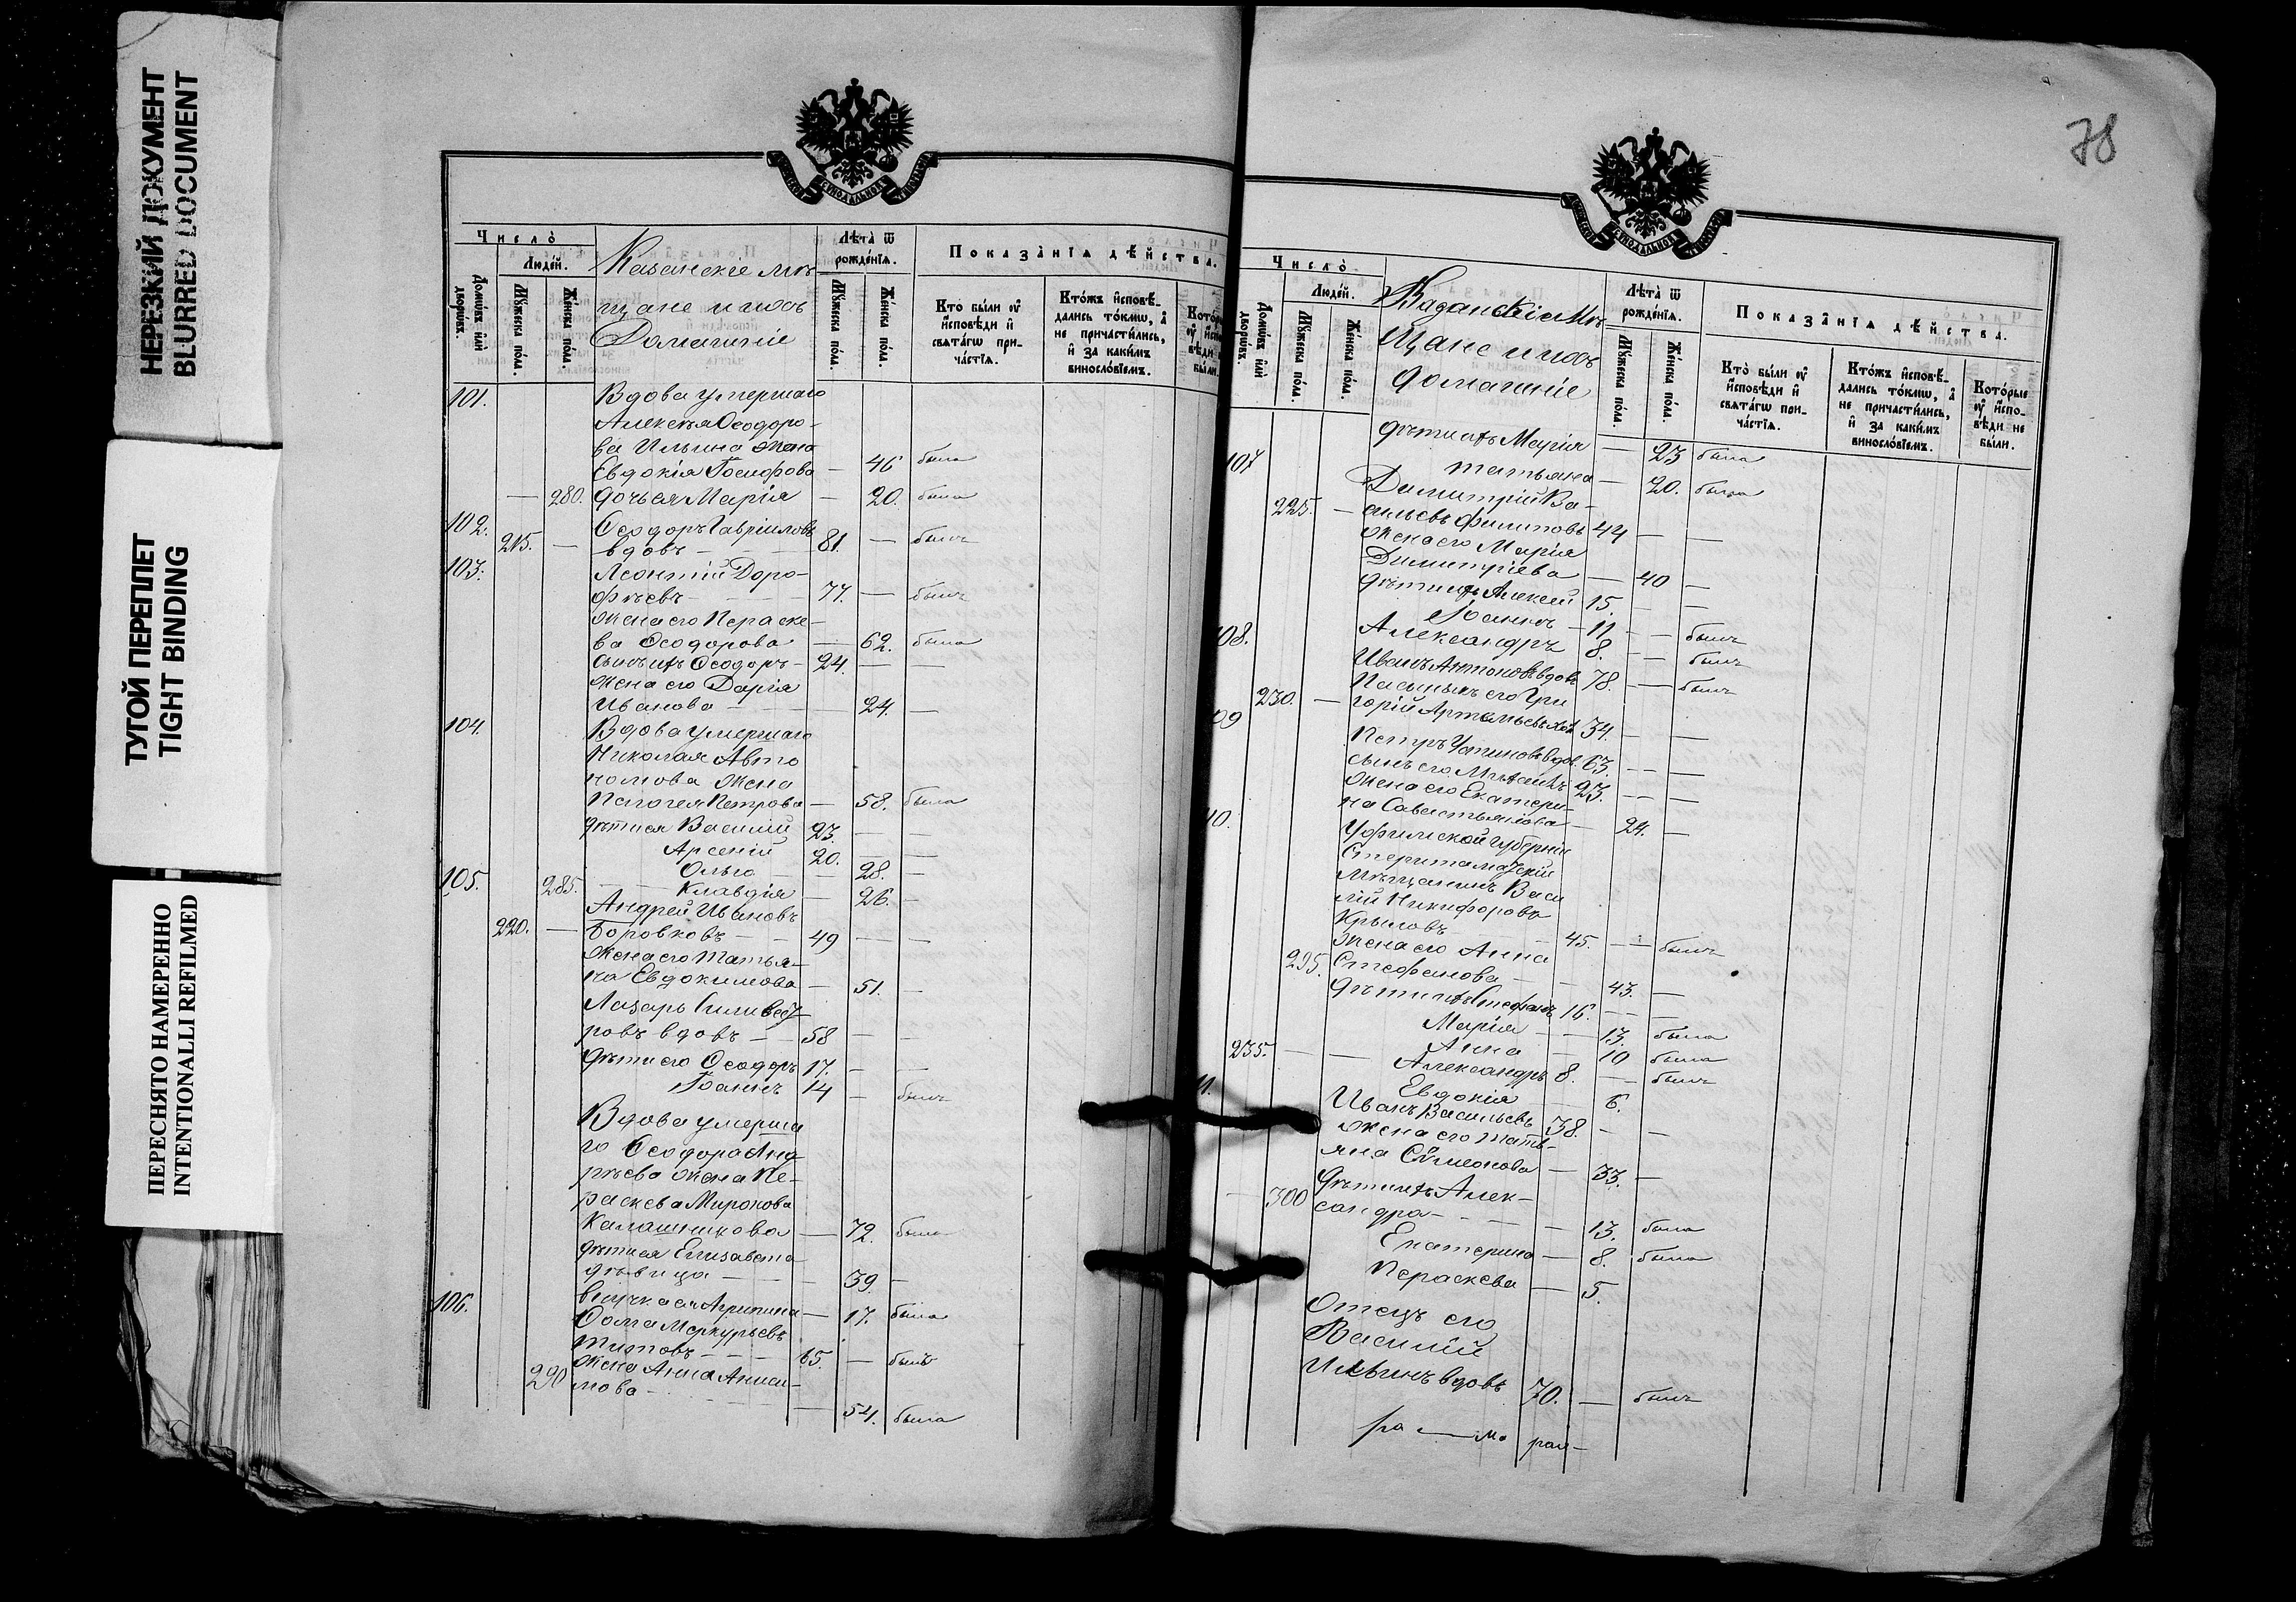 НЕРЕЗКИЙ ДОКУМЕНТ
BLURRED DOCUMENT
ТУГОЙ ПЕРЕПЛЕТ
TIGHT BINDING
ПЕРЕСНЯТО НАМЕРЕННО
INTENTIONALLI REFILMED
Число̀
Домѡ́въ и҆лѝ дворѡ́въ.
Людей.
Мꙋ́жеска по́ла.
Же́нска по́ла.
Казанскіе мѣ-
щане и ихъ
Домашніе
Лѣта̀ ѿ рожде́нїѧ.
Мꙋ́жеска по́ла.
Же́нска по́ла.
Показа̑нїѧ дѣ́йства.
Кто̀ бы́ли ᲂу҆ и҆сповѣ́ди и҆ свѧта́гѡ прича́стїѧ.
Кто́жъ и҆сповѣ́дались то́кмѡ, а҆ не причасти́лись, и҆ за каки́мъ винослѡ́вїемъ.
101. Вдова умершаго
Алексѣя Ѳеодоро-
ва Ильина жена
Евдокія Іосифова — 46 была
— 280. дочь ея Марія — 20. была
102. Ѳеодоръ Гавріиловъ
215. — вдовъ — 81. — былъ
103. Леонтій Доро-
фѣевъ — 77. — былъ
жена его Параске-
ва Ѳеодорова — 62. была
сынъ ихъ Ѳеодоръ — 24. — —
жена его Дарія
Иванова — 24. —
104. Вдова умершаго
Николая Авто
номова жена
Пелагея Петрова — 58. была
дѣти ея Василій 23. — —
Арсеній 20. — —
Ольга — 28. —
105. 285. Клавдія — 26. —
Андрей Ивановъ
220. — Боровковъ — 49 — —
жена его Татья-
на Евдокимова — 51. —
Лазарь Сильвест
ровъ вдовъ — 58 — —
дѣти его Ѳеодоръ 17. — —
Іоаннъ 14 — былъ
Вдова умерша
го Ѳеодора Анд
рѣева жена Па-
раскева Миронова
Калашникова — 72. была
дѣти ея Елизавета
дѣвица — 39. —
внучка ея Агрипина — 17. была
106. Ѳома Меркурьевъ
Титовъ — 65. — былъ
жена Анна Аниси-
290 мова — 54. была
78
Число̀
Домѡ́въ и҆лѝ дворѡ́въ.
Людей.
Мꙋ́жеска по́ла.
Же́нска по́ла.
Казанскіе Мѣ
щане и ихъ
домашніе
Лѣта̀ ѿ рожде́нїѧ.
Мꙋ́жеска по́ла.
Же́нска по́ла.
Показа̑нїѧ дѣ́йства.
Кто̀ бы́ли ᲂу҆ и҆сповѣ́ди и҆ свѧта́гѡ прича́стїѧ.
Кто́жъ и҆сповѣ́дались то́кмѡ, а҆ не причасти́лись, и҆ за каки́мъ винослѡ́вїемъ.
Кото́рые ᲂу҆ и҆сповѣ́ди не бы́ли.
дѣти ихъ Марія — 23 была
Татьяна — 20. была
107 Димитрій Ва-
225. — сильевъ Филиповъ 44 — —
жена его Марія
Димитріева — 40 —
дѣти ихъ Алексей 15. — —
Іоаннъ — 11 — — былъ
Александръ 8. — — былъ
108. Иванъ Антоновъ вдовъ 78. — — былъ
Пасынокъ его Гри
230. — горій Артемьевъ 34. — —
109 Петръ вдов. 63. — —
сынъ его Михаилъ 23. — —
жена его Екатери-
на Савастьянова — 24. —
110. Уфимской губерніи
Стерлитамацкій
Мѣщанинъ Васи
лій Никифоровъ
Крыловъ — 45. — — былъ
жена его Анна
295. Стефанова — 43. —
дѣти ихъ Стефанъ 16. — —
Марія — 13. была
Анна — 10 была
235. — — Александръ 8. — былъ
Евдокія — 6.
11. Иванъ Васильевъ 38. — —
жена его Тать-
яна Сѵмеонова — 33. —
дѣти ихъ Алек-
— 300 сандра — 13. была
Екатерина — 8. была
Параскева — 5.
Отецъ его
Василій
Ильинъ вдовъ 70. — былъ